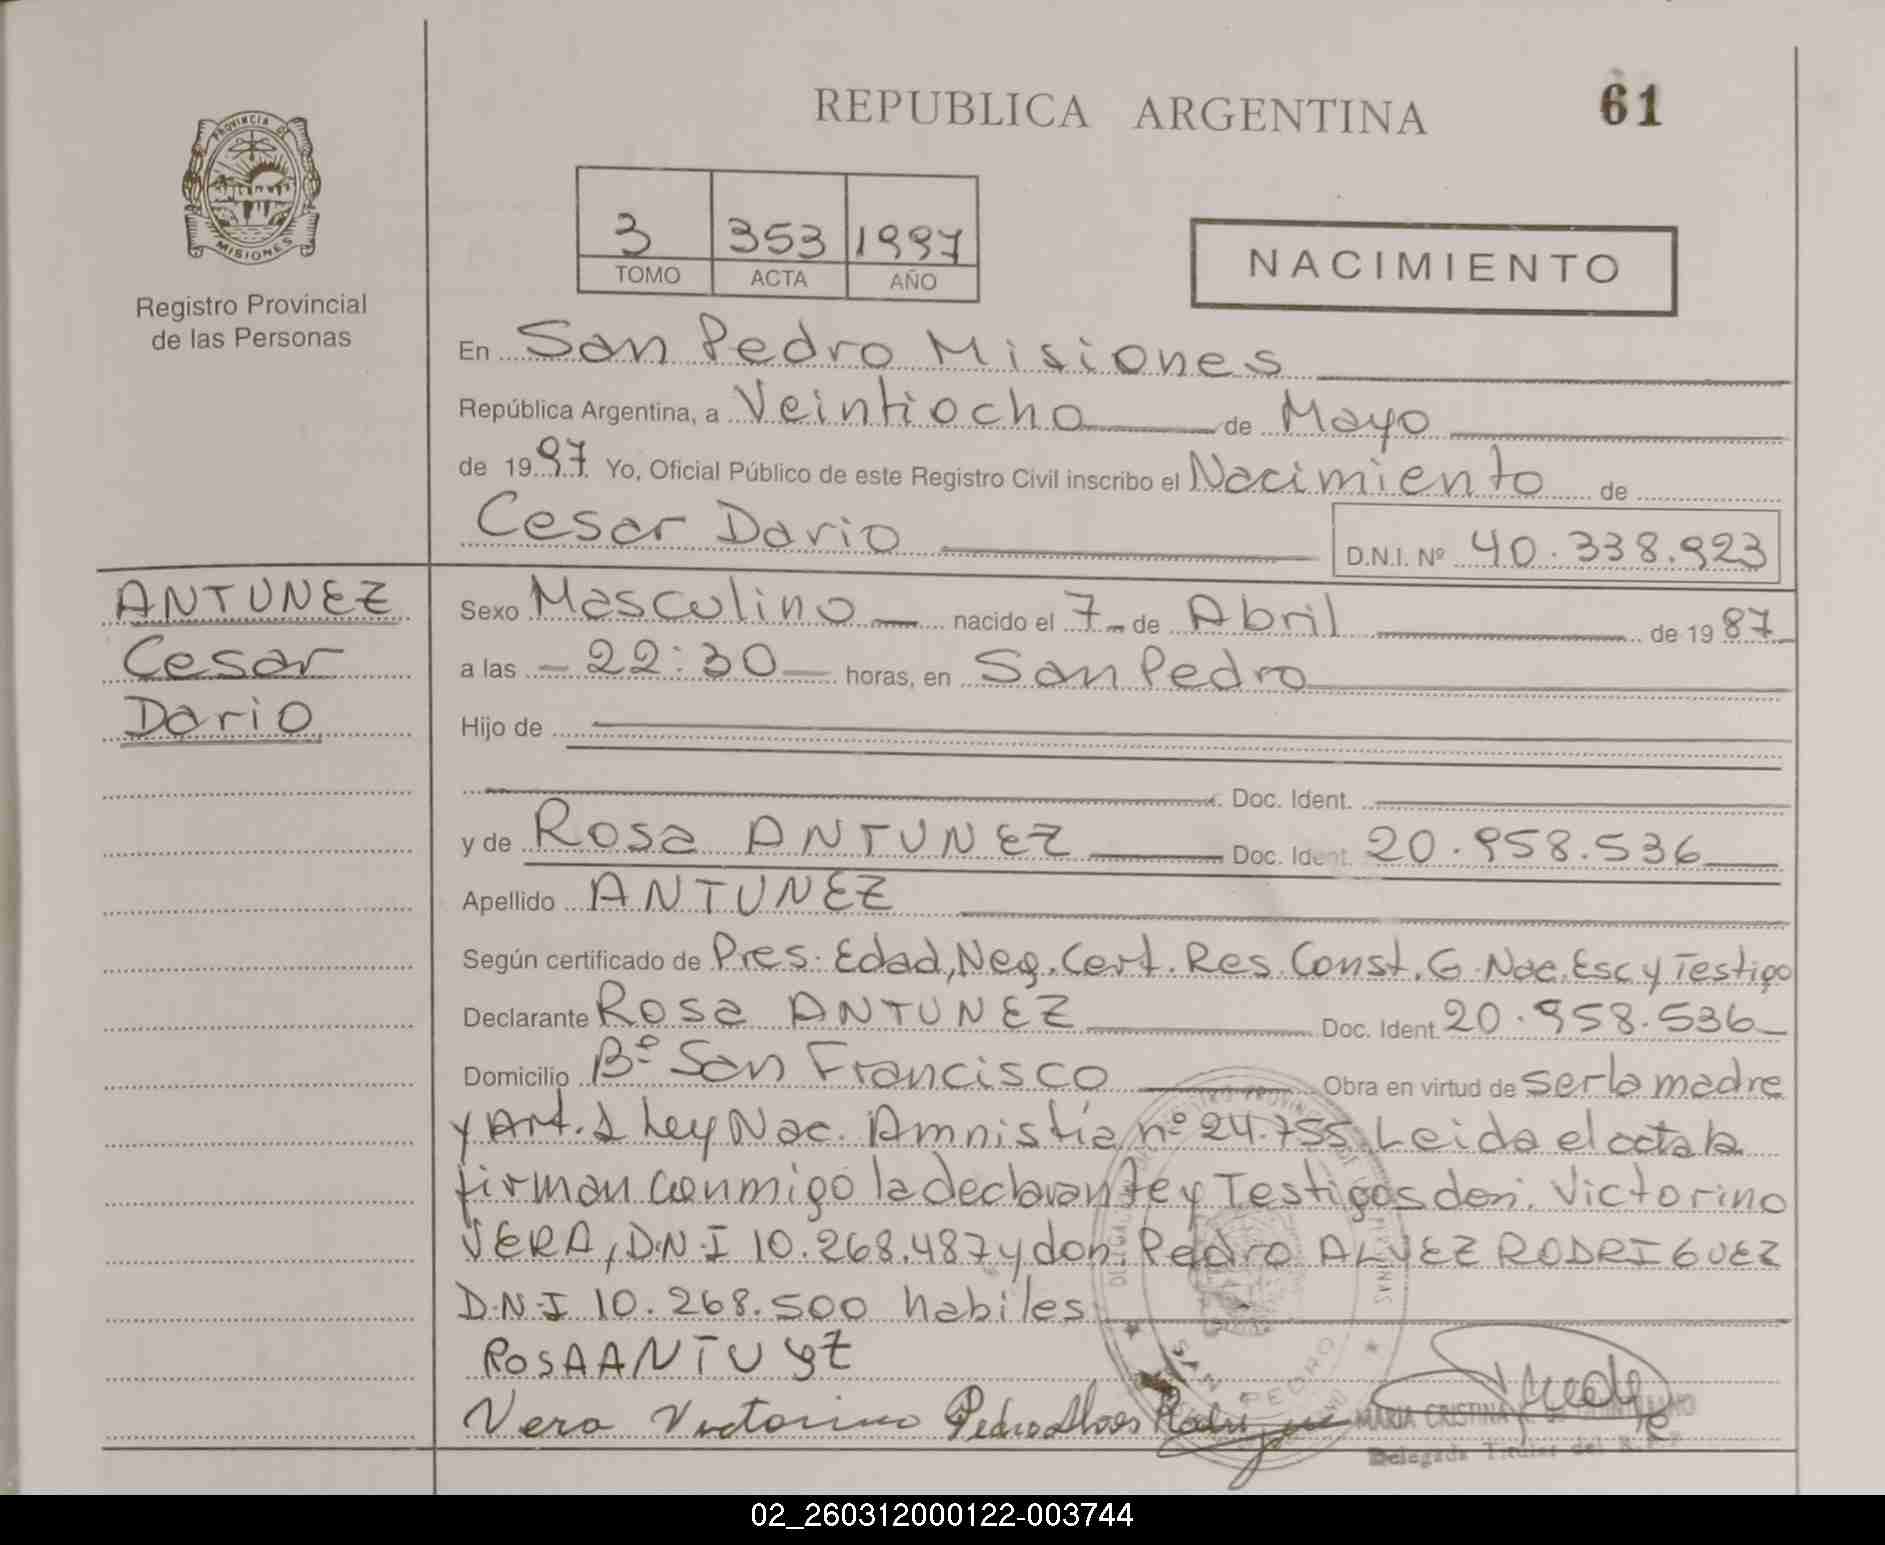 REPUBLICA ARGENTINA
61
PROVINCIA DE
MISIONES
Registro Provincial
de las Personas
3 353 1997
TOMO ACTA AÑO
NACIMIENTO
En San Pedro Misiones
República Argentina, a Veintiocho de Mayo
de 1997 Yo, Oficial Público de este Registro Civil inscribo el Nacimiento de
Cesar Dario D.N.I. Nº 40.338.923
ANTUNEZ
Cesar
Dario
Sexo Masculino nacido el 7 de Abril de 1987
a las 22:30 horas, en San Pedro
Hijo de
Doc. Ident.
y de Rosa ANTUNEZ Doc. Ident. 20.958.536
Apellido ANTUNEZ
Según certificado de Pres. Edad, Neg. Cert. Res. Const. G. Nac. Esc y Testigo
Declarante Rosa ANTUNEZ Doc. Ident. 20.958.536
Domicilio Bº San Francisco Obra en virtud de ser la madre
y Art. 1 Ley Nac. Amnistía nº 24.755. Leida el acta la
firman conmigo la declarante y Testigos don. Victorino
VERA, D.N.I 10.268.487 y don. Pedro ALVEZ RODRIGUEZ
D.N.I 10.268.500 habiles
ROSA
Vera Victorino Pedro Alves
SAN PEDRO
MARIA CRISTINA
Delegada Titular del R.P.P
02_260312000122-003744